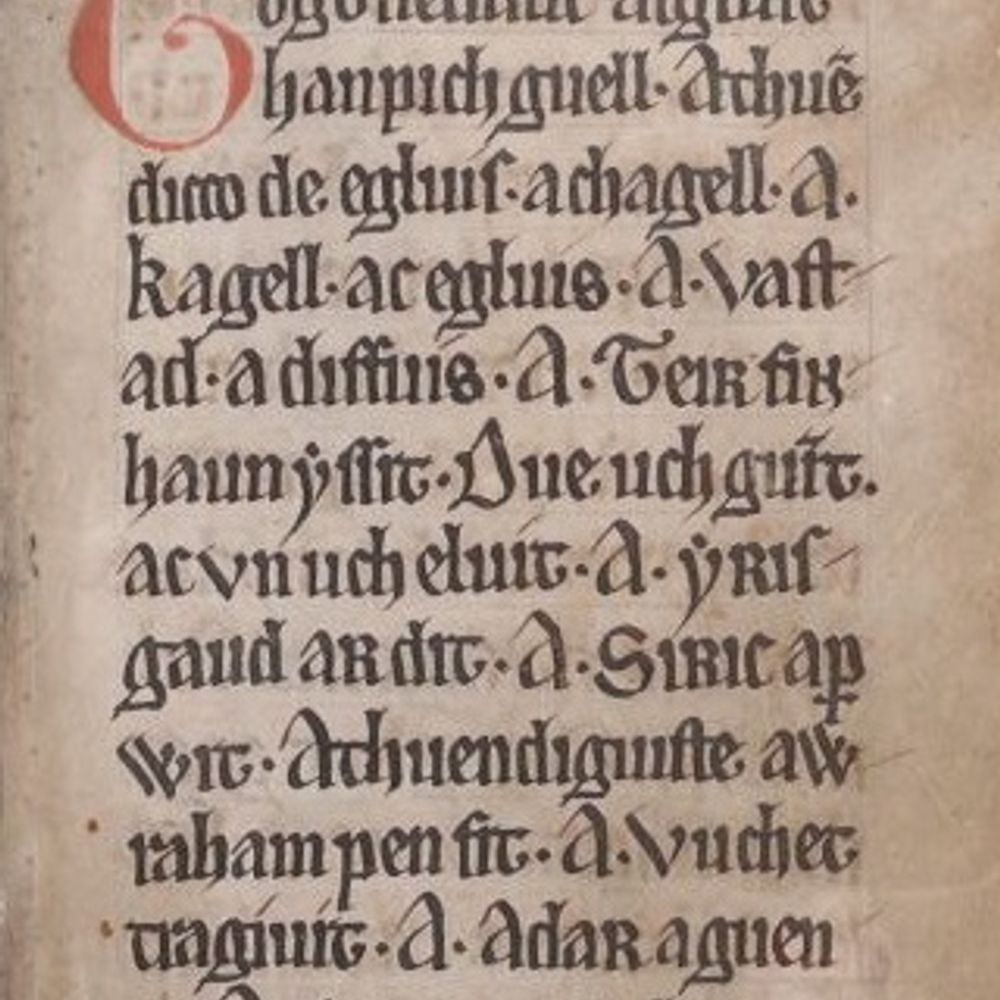 Gogoneduauc argluit
hanpich guell. Athuē
dicco de egluis. a chagell. A.
kagell. ac egluis. A. vast
ad. a diffuis. A. Teir fin
haun ẏssit. Due uch guit.
ac vn uch eluit. A. ẏRis
gaud aR dit. A. SiRic ap
wit. Athuendiguiste aw
raham pen fit. A. vuchet
tragiuit. A. AdaR aguen